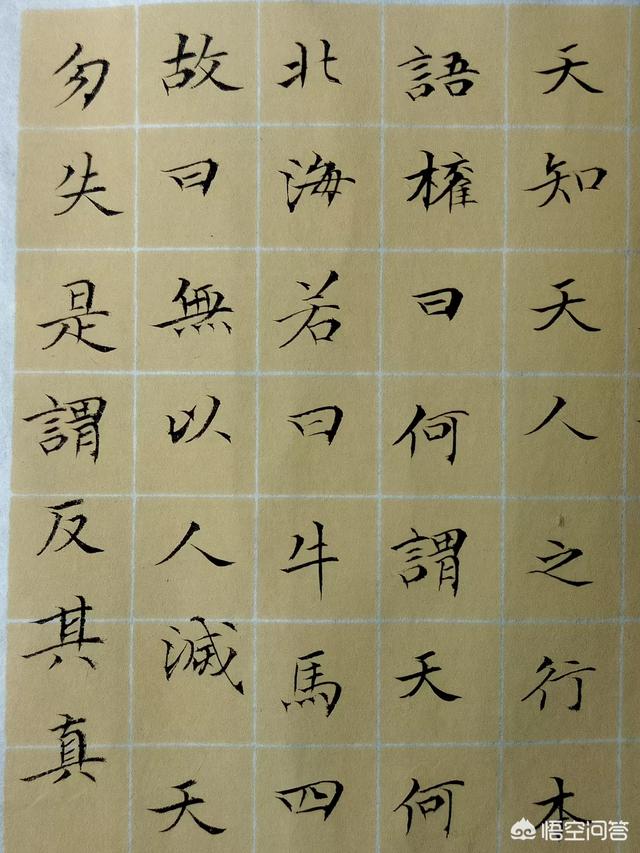 天知天人之行本
語權曰何謂天何
北海若曰牛馬四
故曰無以人滅天
勿失是謂反其真
悟空问答